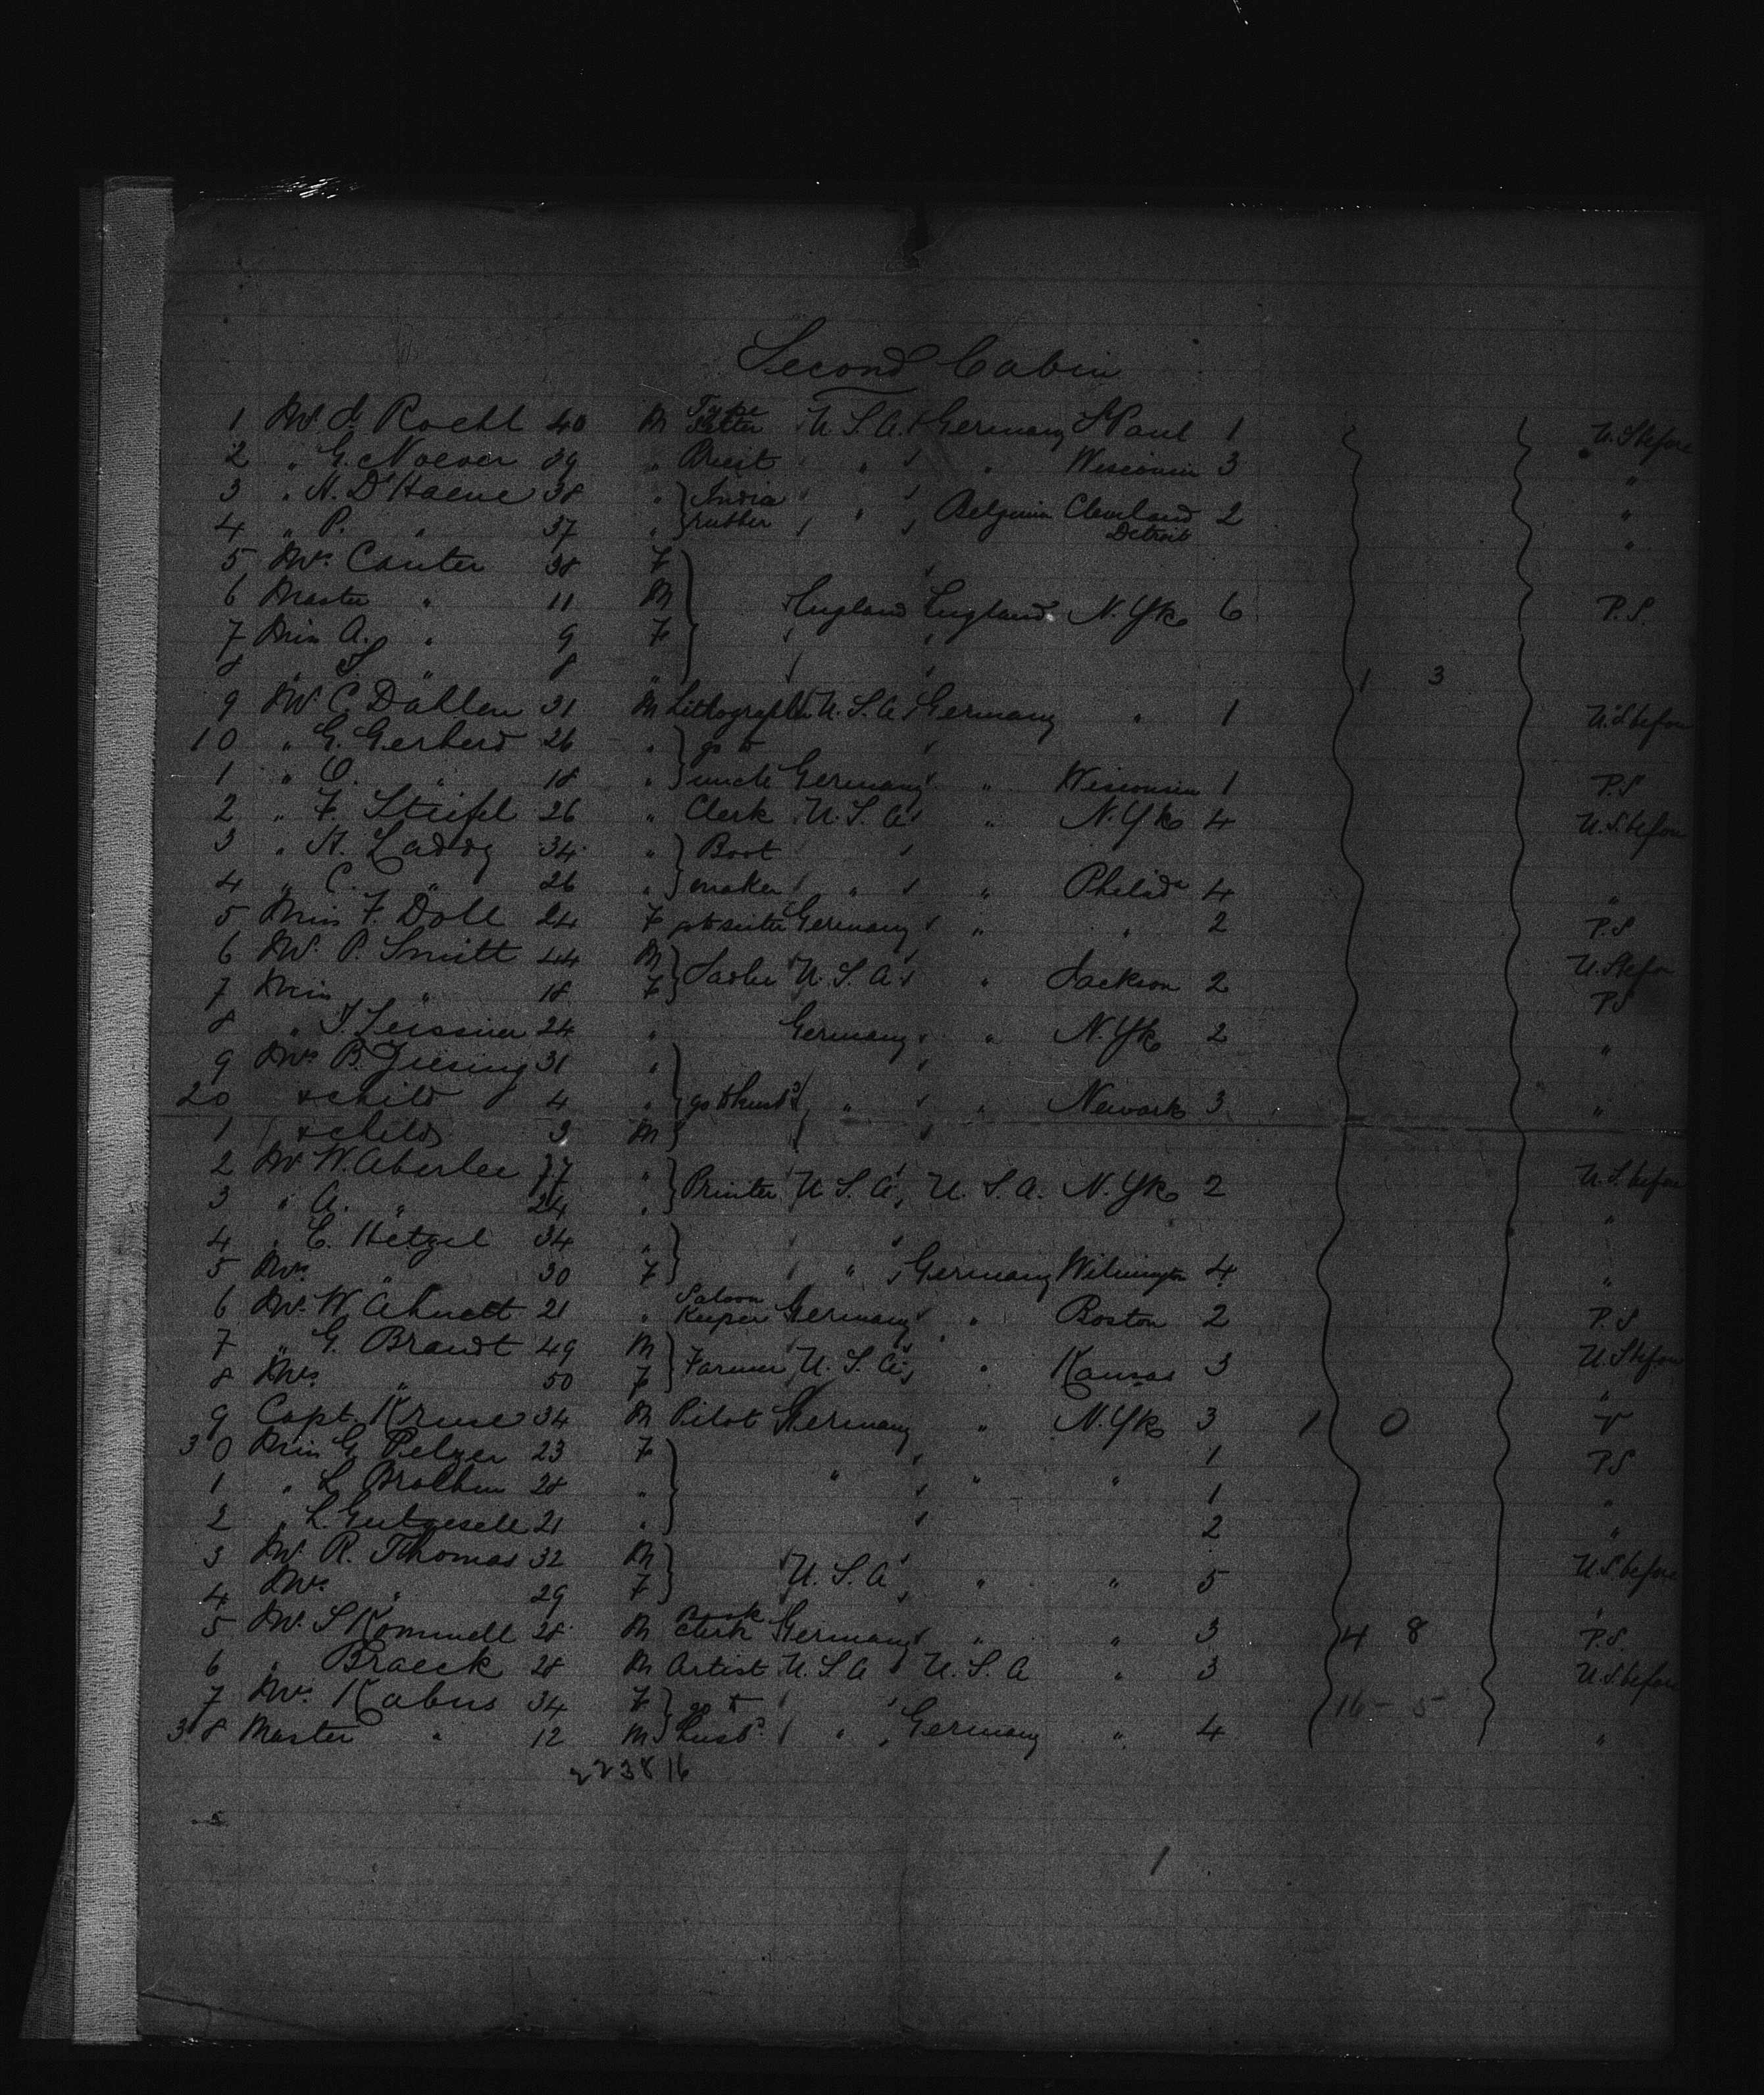 Second Cabin
1 Mr. J. Roehl 40 M Type Setter U. S. A. Germany St Paul 1 U. S. before
2 " G. Noever 39 " Priest " " Wisconsin 3 "
3 " H. D'Haene 38 " India "
4 " P. " 37 " rubber " Belgium Cleveland Detroit 2 "
5 Mrs. Canter 38 F
6 Master " 11 M England England N. Yk 6 P. S.
7 Miss A. " 9 F
8 " S. " 8 " 1 3
9 Mr. C. Dahlen 31 M Lithograph U. S. A. Germany " 1 U. S. before
10 " G. Gerherd 26 " go to
1 " O. " 18 " uncle Germany " Wisconsin 1 P. S
2 " F. Steifel 26 " Clerk U. S. A " N. Yk 4 U. S. before
3 " H. Laddy 34 " Boot
4 " C. " 26 " maker " " Philada 4 "
5 Miss F. Doll 24 F go to sister Germany " " 2 P. S
6 Mr. P. Smitt 44 M U. S. before
7 Miss " 18 F Sadler U. S. A " Jackson 2 P S
8 " J. Leissner 24 " Germany " N. Yk 2 "
9 Mrs B. Giesing 31 "
20 & child 4 " go to husbd " " Newark 3 "
1 & child 3 M
2 Mr W. Aberlee 37 " Printer U. S. A U. S. A. N. Yk 2 U. S. before
3 " A. " 24 " "
4 " E. Hetzel 34 "
5 Mrs " 30 F " Germany Wilmington 4 "
6 Mr. W. Ahnett 21 " Saloon Keeper Germany " Boston 2 P. S
7 " G. Brandt 49 M Farmer U. S. A. " Kansas 3 U. S. before
8 Mrs. " 50 F "
9 Capt. Kruse 34 M Pilot Germany " N. Yk 3 1 0
30 Miss G. Pelzer 23 F 1 P S
1 " L. 28 " " " " 1 "
2 " L. Gutgesell 21 " 2 "
3 Mr R. Thomas 32 M U. S. before
4 Mrs. " 29 F U. S. A " " 5 "
5 Mr. S Kommell 28 M Clerk Germany " " 3 4 8 P. S.
6 " Braeck 28 M Artist U. S. A U. S. A " 3 U. S. before
7 Mrs. Kabus 34 F go to 16 - 5
38 Master " 12 M husbd. " Germany " 4 "
22 38 16
5
1